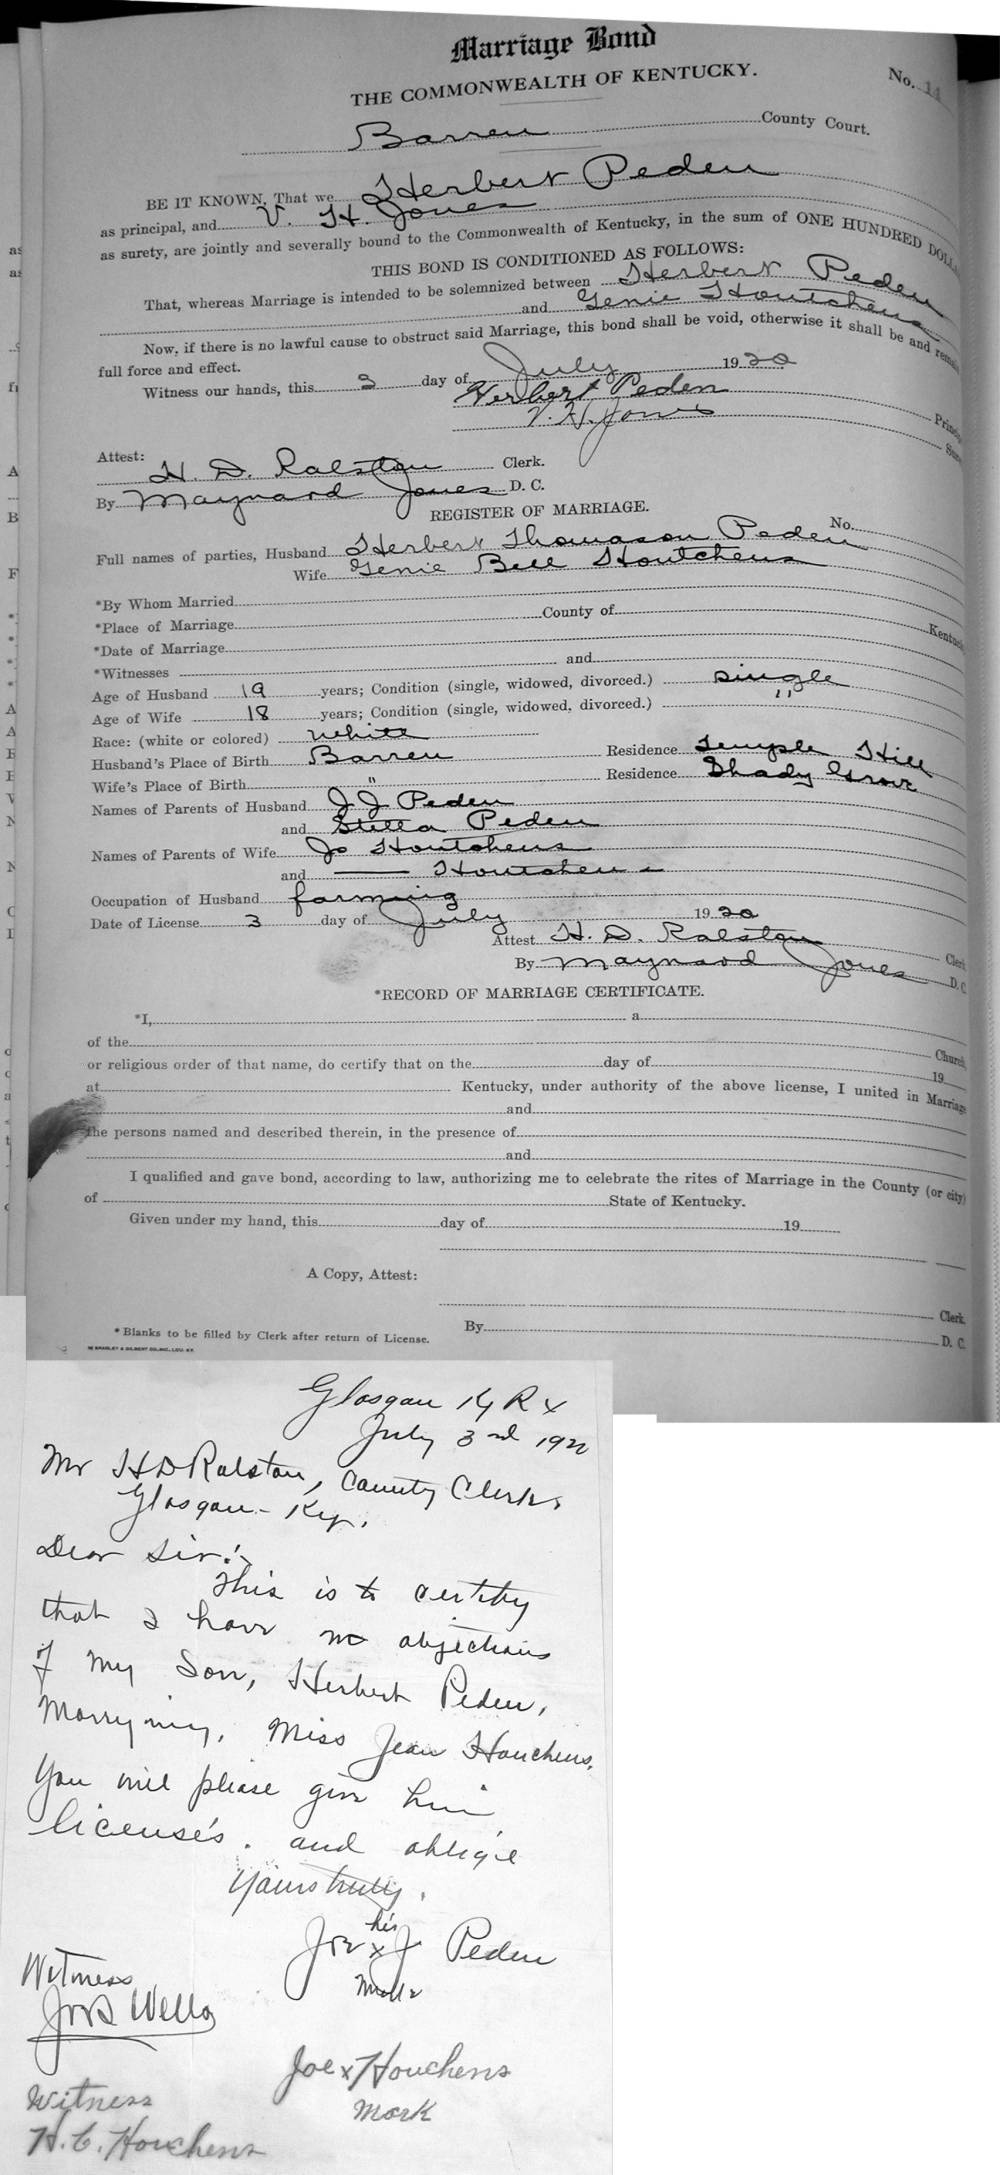 Marriage Bond
THE COMMONWEALTH OF KENTUCKY.
No. 14
Barren County Court.
BE IT KNOWN, That we Herbert Peden
as principal, and V. H. Jones
as surety, are jointly and severally bound to the Commonwealth of Kentucky, in the sum of ONE HUNDRED DOLLA
THIS BOND IS CONDITIONED AS FOLLOWS:
That, whereas Marriage is intended to be solemnized between Herbert Peden
and Genie Houtchens
Now, if there is no lawful cause to obstruct said Marriage, this bond shall be void, otherwise it shall be and remai
full force and effect.
Witness our hands, this 3 day of July 1920
Herbert Peden
Princip
V. H. Jones
Sure
Attest:
H. D. Ralston Clerk.
By Maynard Jones D. C.
REGISTER OF MARRIAGE.
No.
Full names of parties, Husband Herbert Thomason Peden
Wife Genie Bell Houtchens
*By Whom Married
*Place of Marriage County of Kentucky
*Date of Marriage
*Witnesses and
Age of Husband 19 years; Condition (single, widowed, divorced.) single
Age of Wife 18 years; Condition (single, widowed, divorced.) "
Race: (white or colored) white
Husband's Place of Birth Barren Residence Temple Hill
Wife's Place of Birth " Residence Shady Grove
Names of Parents of Husband J J Peden
and Stella Peden
Names of Parents of Wife Jo Houtchens
and — Houtchens
Occupation of Husband farming
Date of License 3 day of July 1920
Attest H. D. Ralston Clerk
By Maynard Jones D. C.
*RECORD OF MARRIAGE CERTIFICATE.
*I, a
of the Church
or religious order of that name, do certify that on the day of 19
at Kentucky, under authority of the above license, I united in Marriage
and
the persons named and described therein, in the presence of
and
I qualified and gave bond, according to law, authorizing me to celebrate the rites of Marriage in the County (or city)
of State of Kentucky.
Given under my hand, this day of 19
A Copy, Attest:
Clerk.
By D. C.
* Blanks to be filled by Clerk after return of License.
Glasgow Ky R x
July 3rd 192
Mr H D Ralston, County Clerk,
Glasgow - Ky.
Dear Sir:
This is to certify
that I have no objections
of my Son, Herbert Peden,
Marrying, Miss Jean Houchens.
You will please give him
license's. and oblige
Yours truly,
his
Joe x J Peden
Mark
Witness
Wells
Joe x Houchens
Mark
Witness
H. C. Houchens